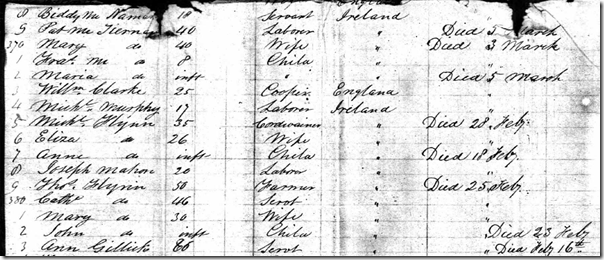 8 Biddy Mc Nam 18 Servant Ireland
9 Pat Mc Tierney 40 Labour " Died 5 March
370 Mary do 40 Wife " Died 3 March
1 do 8 Child "
2 Maria do inft " " Died 5 March
3 Willm Clarke 25 Cooper England
4 Michl Murphy 17 Laborer Ireland
5 Michl Flynn 35 Cordwainer " Died 28 Feby
6 Eliza do 26 Wife "
7 Anne do inft Child " Died 18 Feby
8 Joseph Mahon 20 Labor "
9 Thos Flynn 50 Farmer " Died 25 Feby
380 Cathe do 46 Servt "
1 Mary do 30 Wife "
2 John do inft Child " Died 23 Feby
3 Ann Gillick Servt " Died Feby 16th